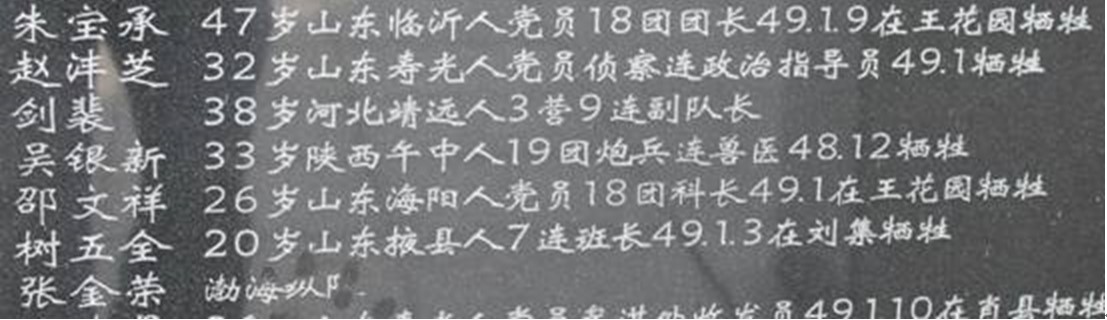 朱宝承 47岁山东临沂人党员18团团长49.1.9在王花园牺牲
赵沣芝 32岁山东寿光人党员侦察连政治指导员49.1牺牲
剑裴 38岁河北靖远人3营9连副队长
吴银新 33岁陕西午中人19团炮兵连兽医48.12牺牲
邵文祥 26岁山东海阳人党员18团科长49.1在王花园牺牲
树五全 20岁山东掖县人7连班长49.1.3在刘集牺牲
张金荣 渤海纵
员49.1.10在肖县牺牲